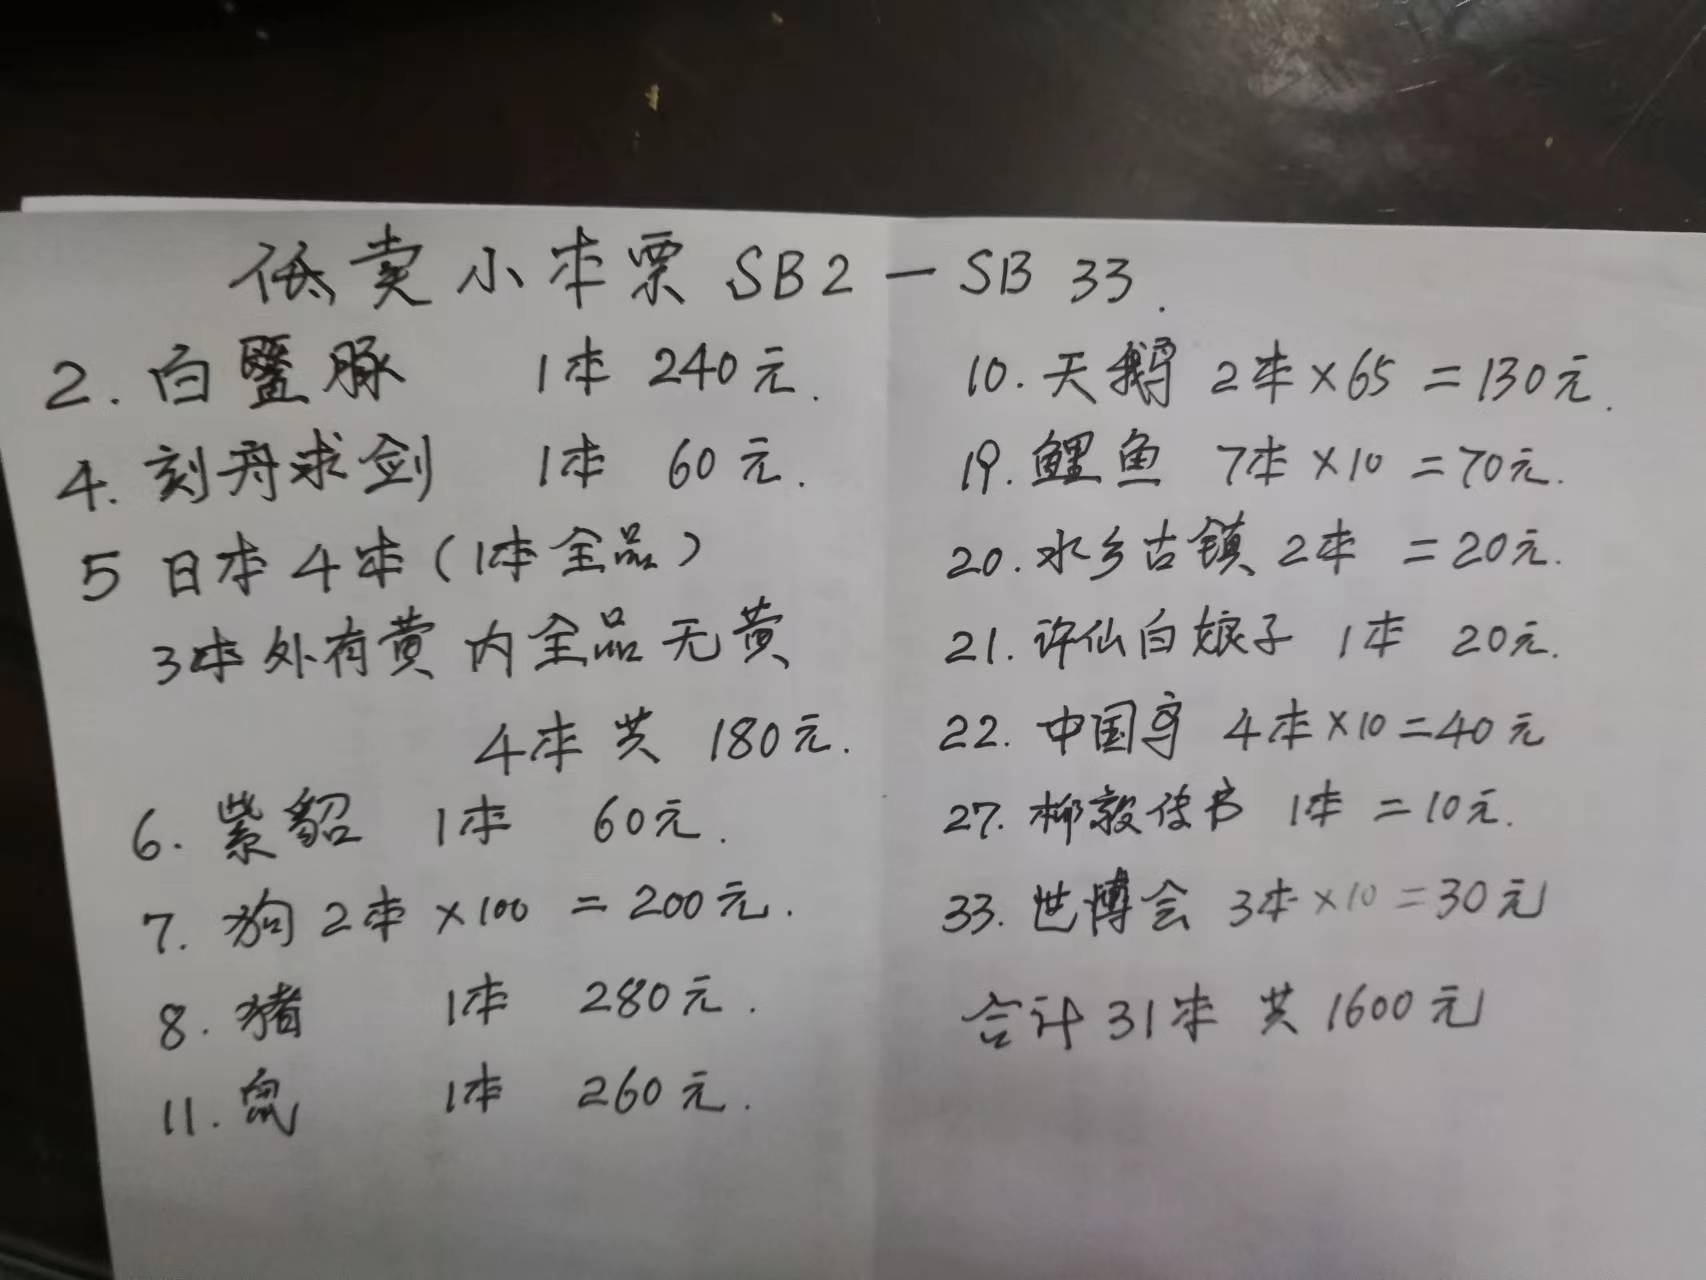 低卖小本票 SB2－SB 33.
2. 白鱀豚 1本 240元.
4. 刻舟求剑 1本 60元.
5 日本 4本（1本全品）
3本外有黄 内全品无黄
4本共 180元.
6. 紫貂 1本 60元.
7. 狗 2本 ×100 = 200元.
8. 猪 1本 280元.
11. 鼠 1本 260元.
10. 天鹅 2本×65 =130元.
19. 鲤鱼 7本×10 =70元.
20. 水乡古镇 2本 =20元.
21. 许仙白娘子 1本 20元.
22. 中国鸟 4本×10=40元
27. 柳毅传书 1本 =10元.
33. 世博会 3本×10=30元
合计31本 共1600元